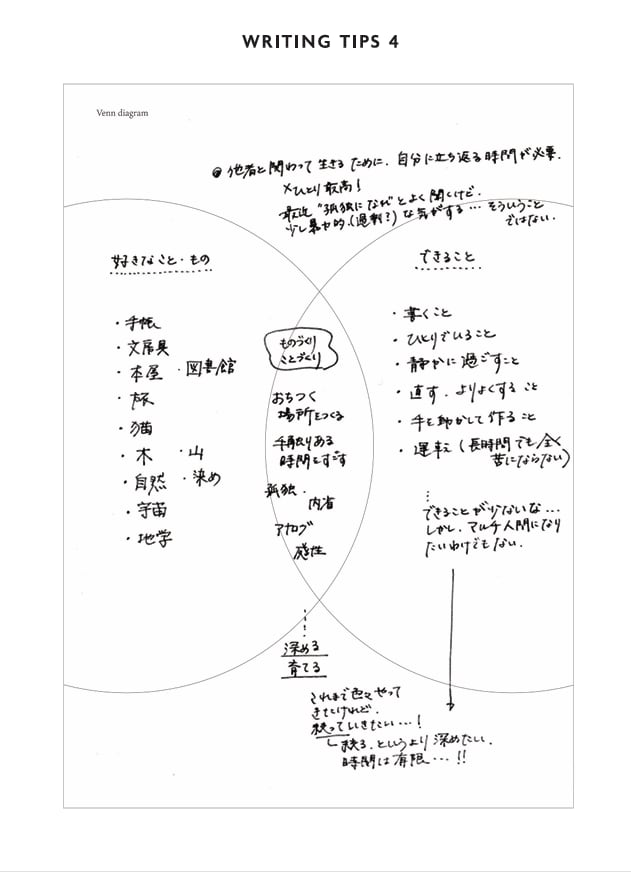 WRITING TIPS 4
Venn diagram
● 他者と関わって生きるために、自分に立ち返る時間が必要。
×ひとり最高！
最近“孤独になれ”とよく聞くけど、
少し暴力的（過剰？）な気がする…そういうこと
ではない。
好きなこと・もの
・手帳
・文房具
・本屋 ・図書館
・旅
・猫
・木 ・山
・自然 ・染め
・宇宙
・地学
ものづくり
ことづくり
おちつく
場所をつくる
手触りある
時間をすごす
孤独．
内省
アナログ
感性
深める
育てる
これまで色々やって
きたけれど、
狭っていきたい…！
狭る、というより深めたい。
時間は有限…!!
できること
・書くこと
・ひとりでいること
・静かに過ごすこと
・直す、よりよくすること
・手を動かして作ること
・運転（長時間でも全く
苦にならない）
できることが少ないな…
しかし、マルチ人間になり
たいわけでもない。